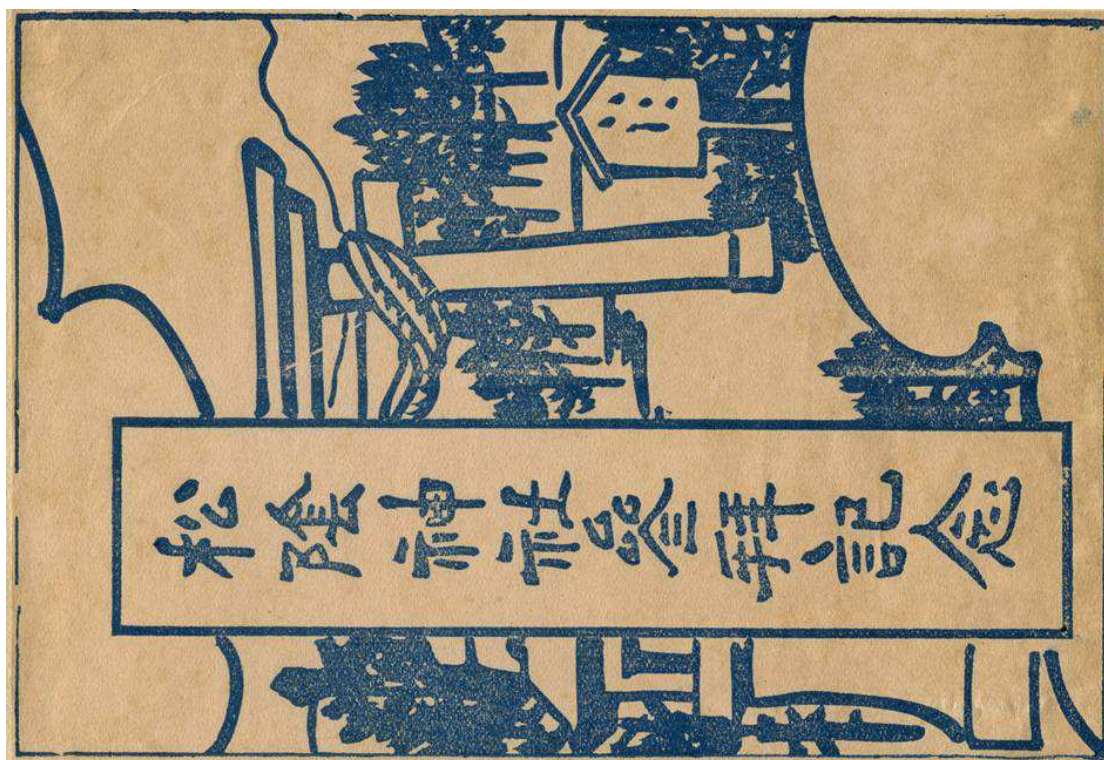 松陰神社參拜記念